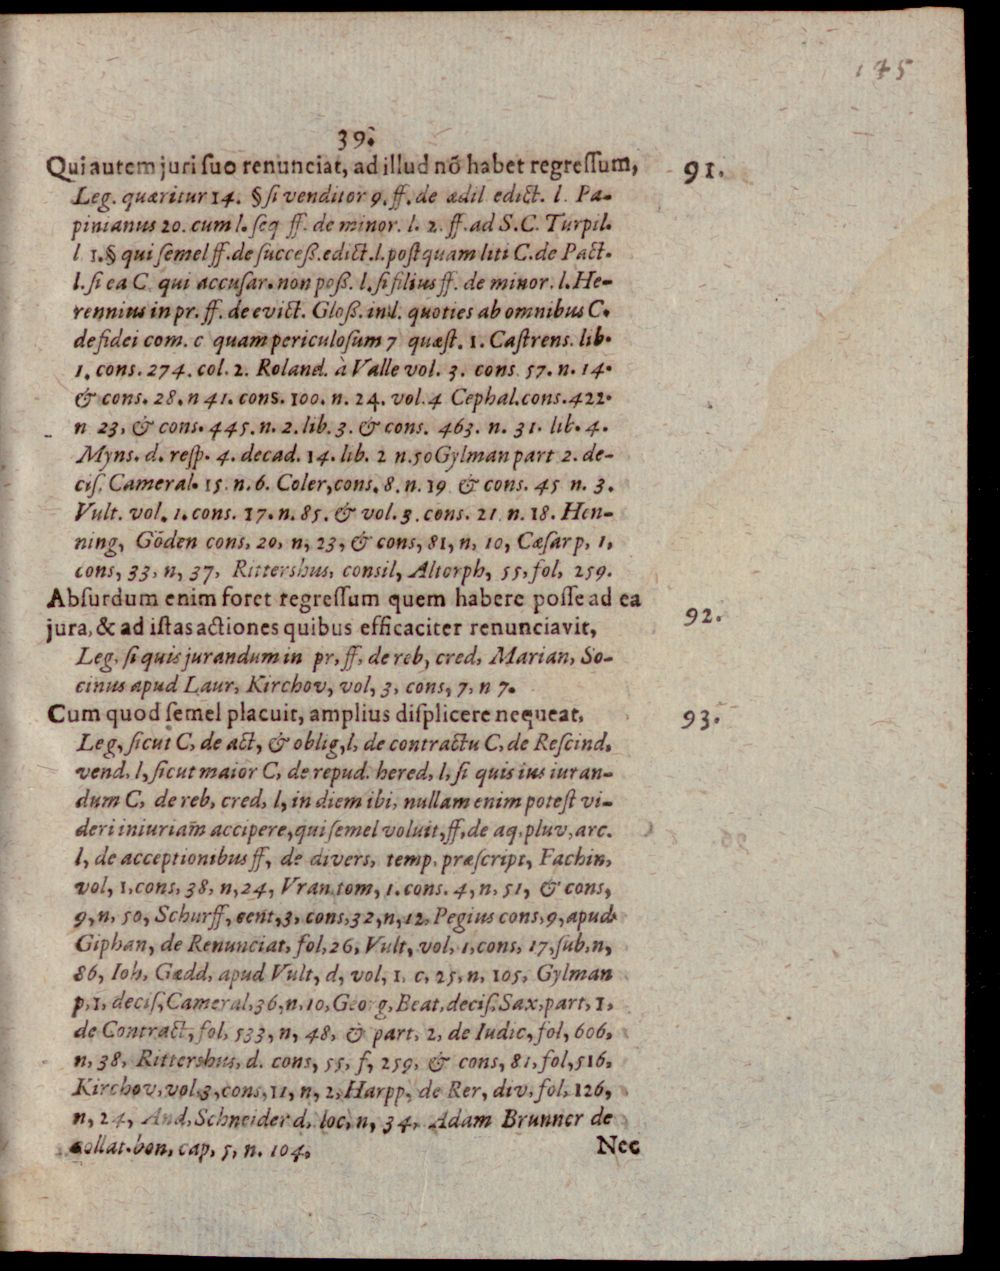 145
39.
Qui autem juri ſuo renunciat, ad illud nõ habet regreſſum, 91.
Leg. quæritur 14. § ſi venditor 9. ff. de ædil edict. l. Pa-
pinianus 20. cum l. ſeq ff. de minor. l. 2. ff. ad S.C. Turpil.
l 1.§ qui ſemel ff. de ſucceß. edict. l. poſtquam liti C. de Pact.
l. ſi ea C. qui accuſar. non poß. l. ſi filius ff. de minor. l. He-
rennius in pr. ff. de evict. Gloß. in l. quoties ab omnibus C.
de fidei com. c quam periculoſum 7 quæſt. 1. Caſtrens. lib.
1. cons. 274. col. 2. Roland. à Valle vol. 3. cons. 57. n. 14.
& cons. 28. n 41. cons. 100. n. 24. vol. 4 Cephal. cons. 422.
n 23, & cons. 445. n. 2. lib. 3. & cons. 463. n. 31. lib. 4.
Myns. d. reſp. 4. decad. 14. lib. 2 n. 50 Gylman part 2. de-
ciſ. Cameral. 15. n. 6. Coler, cons. 8. n. 19 & cons. 45 n. 3.
Vult. vol. 1. cons. 17. n. 85. & vol. 3. cons. 21 n. 18. Hen-
ning, Göden cons, 20, n, 23, & cons, 81, n, 10, Cæſar p, 1,
cons, 33, n, 37, Rittershus, consil, Altorph, 55, fol, 259.
Abſurdum enim foret regreſſum quem habere poſſe ad ea
jura, & ad iſtas actiones quibus efficaciter renunciavit, 92.
Leg, ſi quis jurandum in pr, ff, de reb, cred, Marian, So-
cinus apud Laur, Kirchov, vol, 3, cons, 7, n 7.
Cum quod ſemel placuit, amplius diſplicere nequeat, 93.
Leg, ſicut C, de act, & oblig, l, de contractu C, de Reſcind,
vend, l, ſicut maior C, de repud. hered, l, ſi quis ius iuran-
dum C, de reb, cred, l, in diem ibi, nullam enim poteſt vi-
deri iniuriam accipere, qui ſemel voluit, ff, de aq, pluv, arc.
l, de acceptionibus ff, de divers, temp, præſcript, Fachin,
vol, 1, cons, 38, n, 24, Vran. tom, 1. cons. 4, n, 51, & cons,
9, n, 50, Schurff, cent, 3, cons, 32, n, 12, Pegius cons, 9, apud
Giphan, de Renunciat, fol, 26, Vult, vol, 1, cons, 17, ſub, n,
86, Ioh, Gædd, apud Vult, d, vol, 1, c, 25, n, 105, Gylman
p, 1, deciſ, Cameral, 36, n, 10, Georg, Beat, deciſ, Sax, part, 1,
de Contract, fol, 533, n, 48, & part, 2, de Iudic, fol, 606,
n, 38, Rittershus, d. cons, 55, f, 259, & cons, 81, fol, 516,
Kirchov, vol, 3, cons, 11, n, 2, Harpp, de Rer, div, fol, 126,
n, 24, And, Schneider d, loc, n, 34, Adam Brunner de
collat. bon, cap, 5, n. 104,
Nec